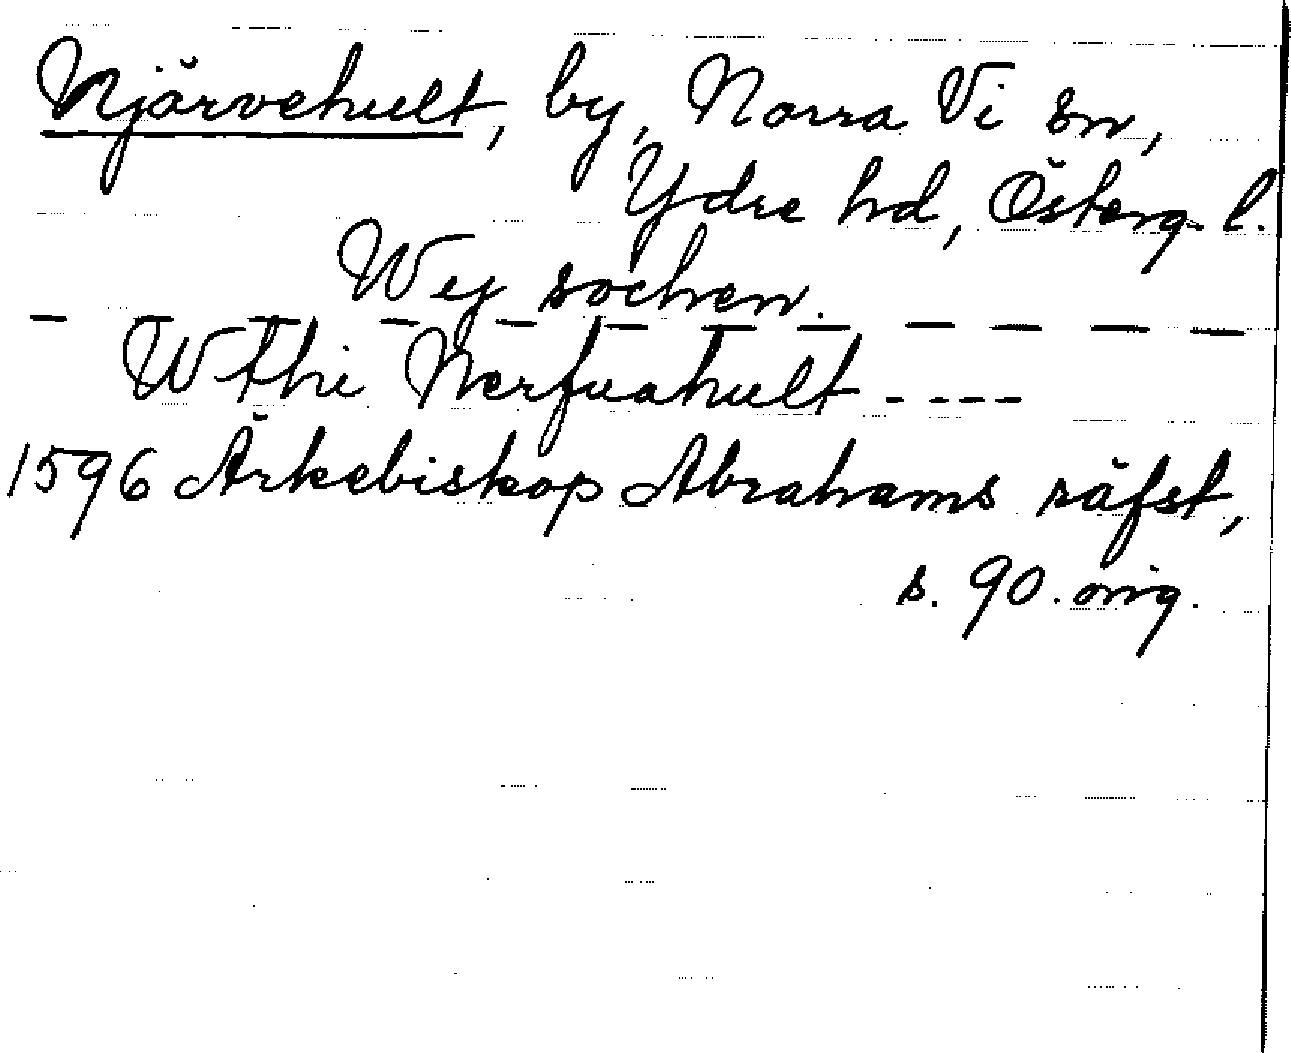 Njärvehult, by, Norra Vi sn,
Ydre hd, Österg. l.
Wej sochen.
W thi Nerfuahult ----
1596 Ärkebiskop Abrahams räfst,
s. 90. orig.